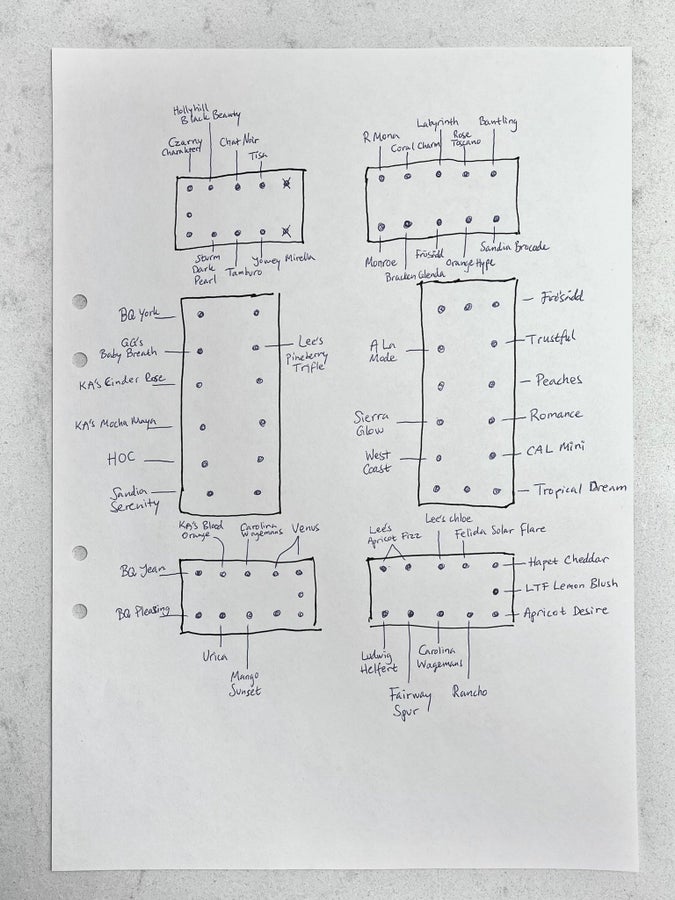 Hollyhill
Black Beauty
Czarny
Charakter
Chat Noir
Tish
Sturm
Dark
Pearl
Tamburo
Yowey Mirella
R Mona
Coral Charm
Labyrinth
Rose
Toscano
Bantling
Monroe
Bracken Glenda
Frösådd
Orange Hype
Sandia Brocade
BQ York
GG's
Baby Breath
KA's Cinder Rose
KA's Mocha Maya
HOC
Sandia
Serenity
Lee's
Pineberry
Trifle
A La
Mode
Sierra
Glow
West
Coast
Frösådd
Trustful
Peaches
Romance
CAL Mini
Tropical Dream
KA's Blood
Orange
Carolina
Wagemans
Venus
BQ Jean
BQ Pleasing
Urica
Mango
Sunset
Lee's
Apricot Fizz
Lee's chloe
Felida Solar Flare
Hapet Cheddar
LTF Lemon Blush
Apricot Desire
Ludwig
Helfert
Fairway
Spur
Carolina
Wagemans
Rancho